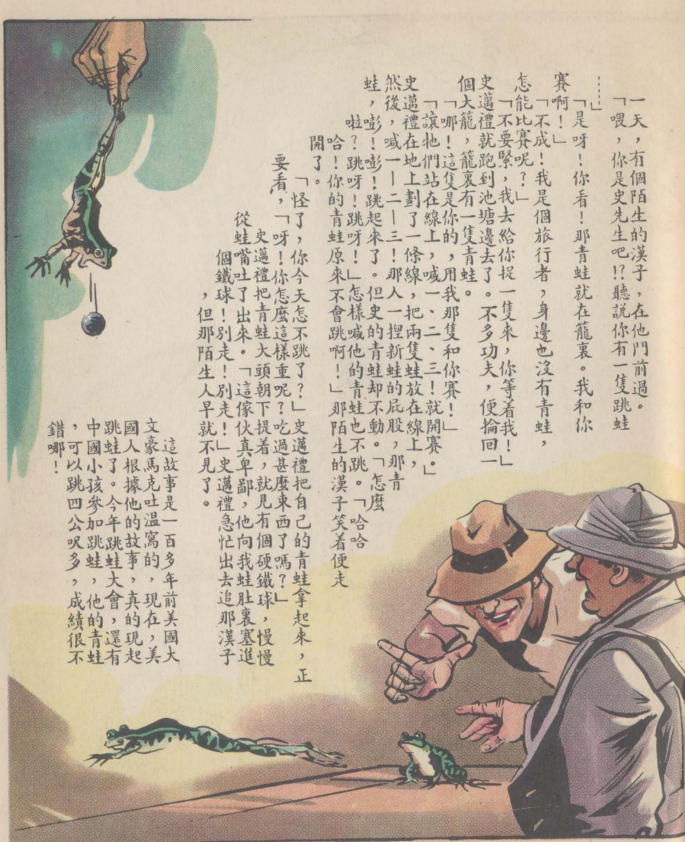 一天，有個陌生的漢子，在他門前過。
「喂，你是史先生吧!?聽説你有一隻跳蛙
……」
「是呀！你看！那青蛙就在籠裏。我和你
賽啊！」
「不成！我是個旅行者，身邊也沒有青蛙，
怎能比賽呢？」
「不要緊，我去給你捉一隻來，你等着我！」
史邁禮就跑到池塘邊去了。不多功夫，便掄回一
個大籠，籠裏有一隻青蛙。
「哪！這隻是你的，用我那隻和你賽！」
「讓牠們站在線上，喊一、二、三！就開賽。」
史邁禮在地上劃了一條線，把兩隻蛙放在線上，
然後，喊一—二—三！那人一捏新蛙的屁股，那青
蛙，嘭！嘭！跳起來了。但史的青蛙却不動。「怎麼
啦？跳呀！跳呀！」怎樣喊他的青蛙也不跳。「哈哈
哈！你的青蛙原來不會跳啊！」那陌生的漢子笑着便走
開了。
「怪了，你今天怎不跳了？」史邁禮把自己的青蛙拿起來，正
要看，「呀！你怎麼這樣重呢？吃過甚麼東西了嗎？」
史邁禮把青蛙大頭朝下提着，就見有個硬鐵球，慢慢
從蛙嘴吐了出來。「這傢伙真卑鄙，他向我蛙肚裏塞進
個鐵球！別走！別走！」史邁禮急忙出去追那漢子
，但那陌生人早就不見了。
這故事是一百多年前美國大
文豪馬克吐溫寫的，現在，美
國人根據他的故事，真的現起
跳蛙了。今年跳蛙大會，還有
中國小孩參加跳蛙，他的青蛙
，可以跳四公呎多，成績很不
錯哪！